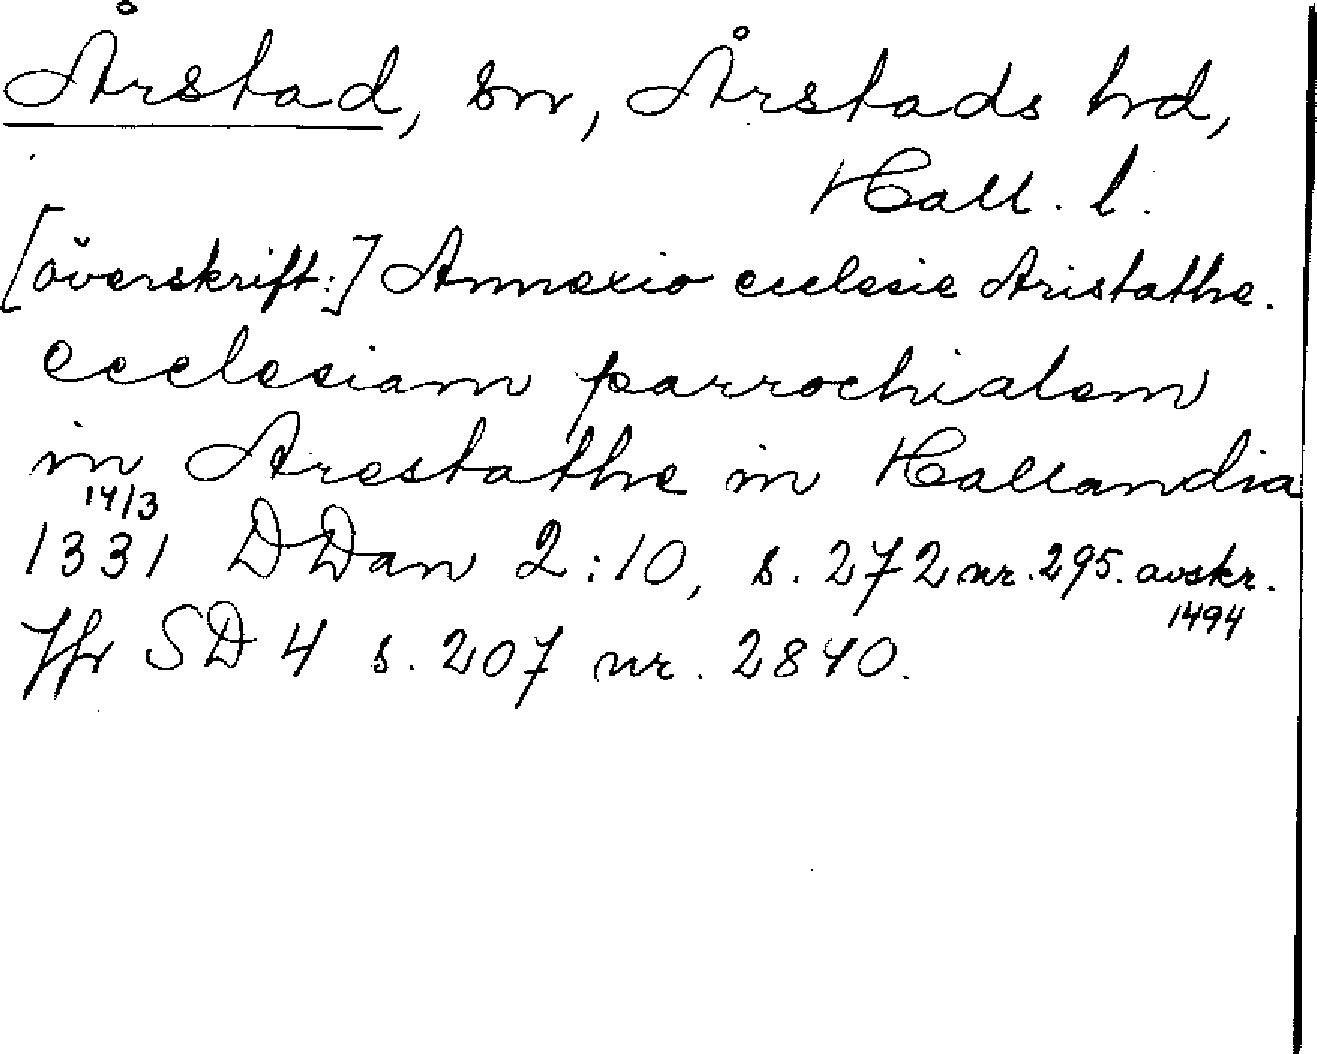 Årstad, sn, Årstads hd,
Hall. l.
[överskrift:] Annexio ecclesie Aristathe.
ecclesiam parrochialem
in Arestathe in Hallandia
14/3
1331 DDan 2:10, s. 272 nr. 295. avskr.
1494
Jfr SD 4 s. 207 nr. 2840.